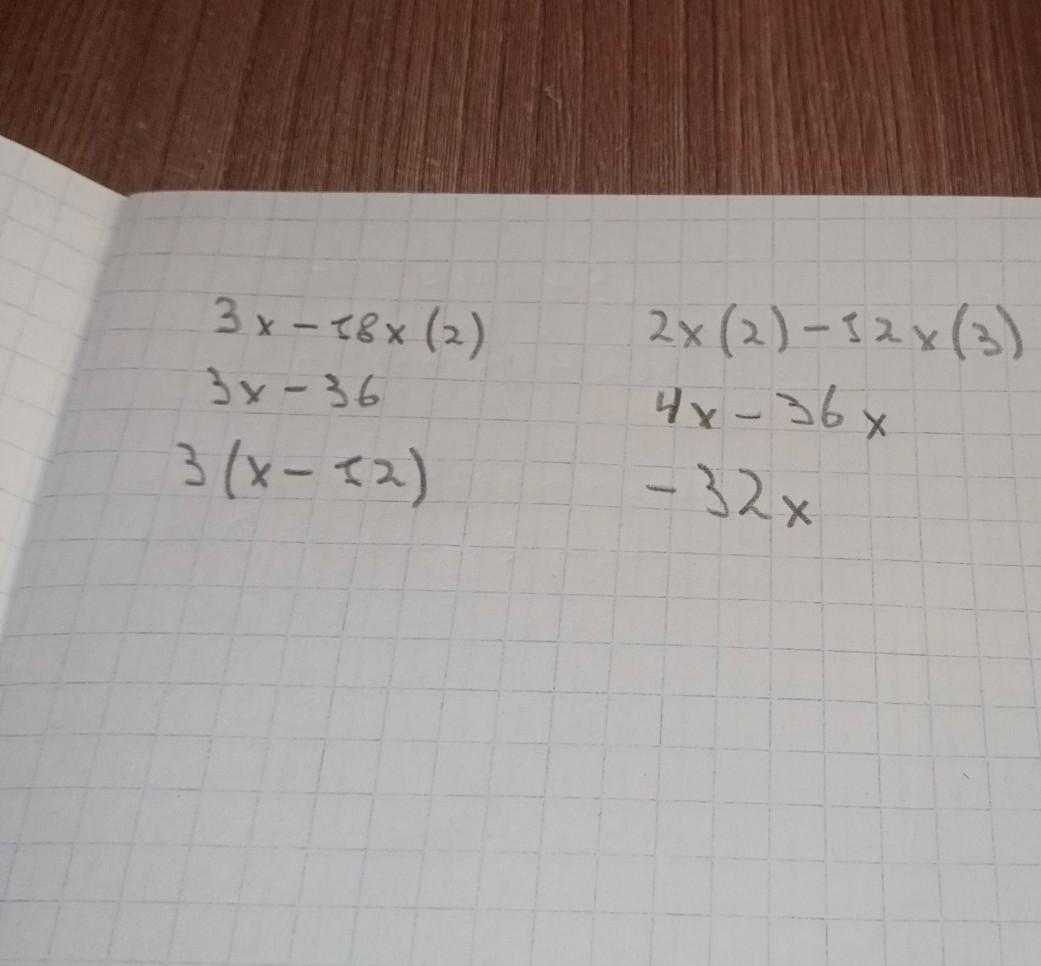 3x-18x(2)
3x-36
3(x-12)
2x(2)-12x(3)
4x-36x
-32x